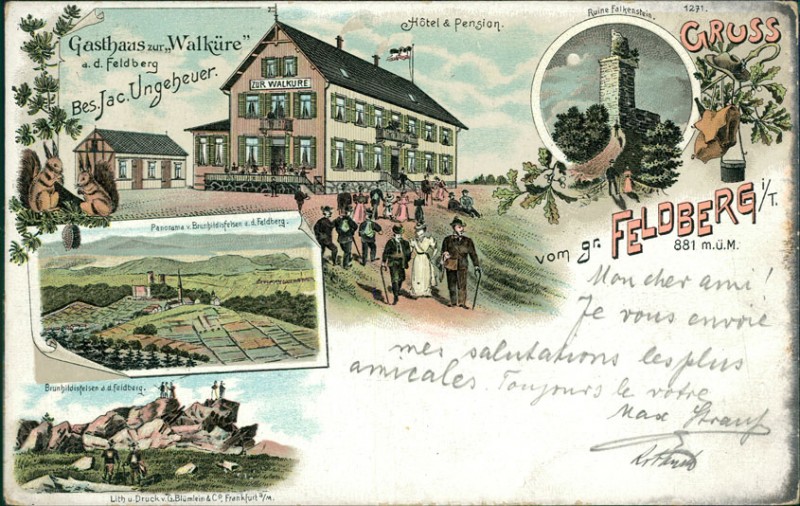 Gasthaus zur „Walküre"
a. d. Feldberg
Bes. Jac. Ungeheuer.
Hôtel & Pension.
ZUR WALKÜRE
Ruine Falkenstein.
1271.
GRUSS
vom gr. FELDBERG i/T.
881 m.ü.M.
Panorama v. Brunhildisfelsen a. d. Feldberg.
Brunhildisfelsen a. d. Feldberg.
Lith u. Druck v. G. Blümlein & Co. Frankfurt a/M.
Mon cher ami!
Je vous envoie
mes salutations les plus
amicales. Toujours le votre
Max